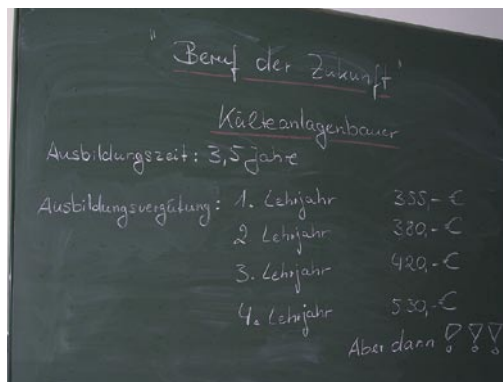 "Beruf der Zukunft"
Kälteanlagenbauer
Ausbildungszeit: 3,5 Jahre
Ausbildungsvergütung: 1. Lehrjahr 355,- €
2 Lehrjahr 380,- €
3. Lehrjahr 420,- €
4. Lehrjahr 530,- €
Aber dann !!!